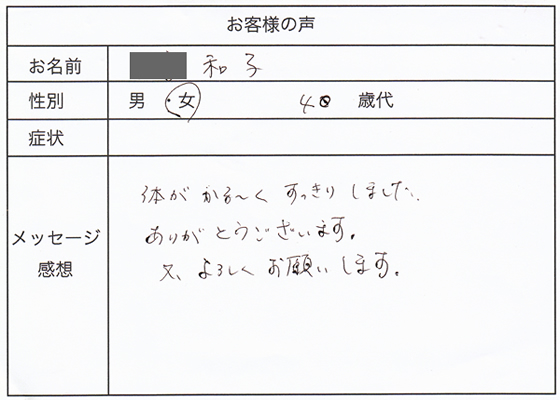 お客様の声
お名前 和子
性別 男・女 40 歳代
症状
メッセージ
感想
体がかる〜くすっきりしました.
ありがとうございます。
又、よろしくお願いします。